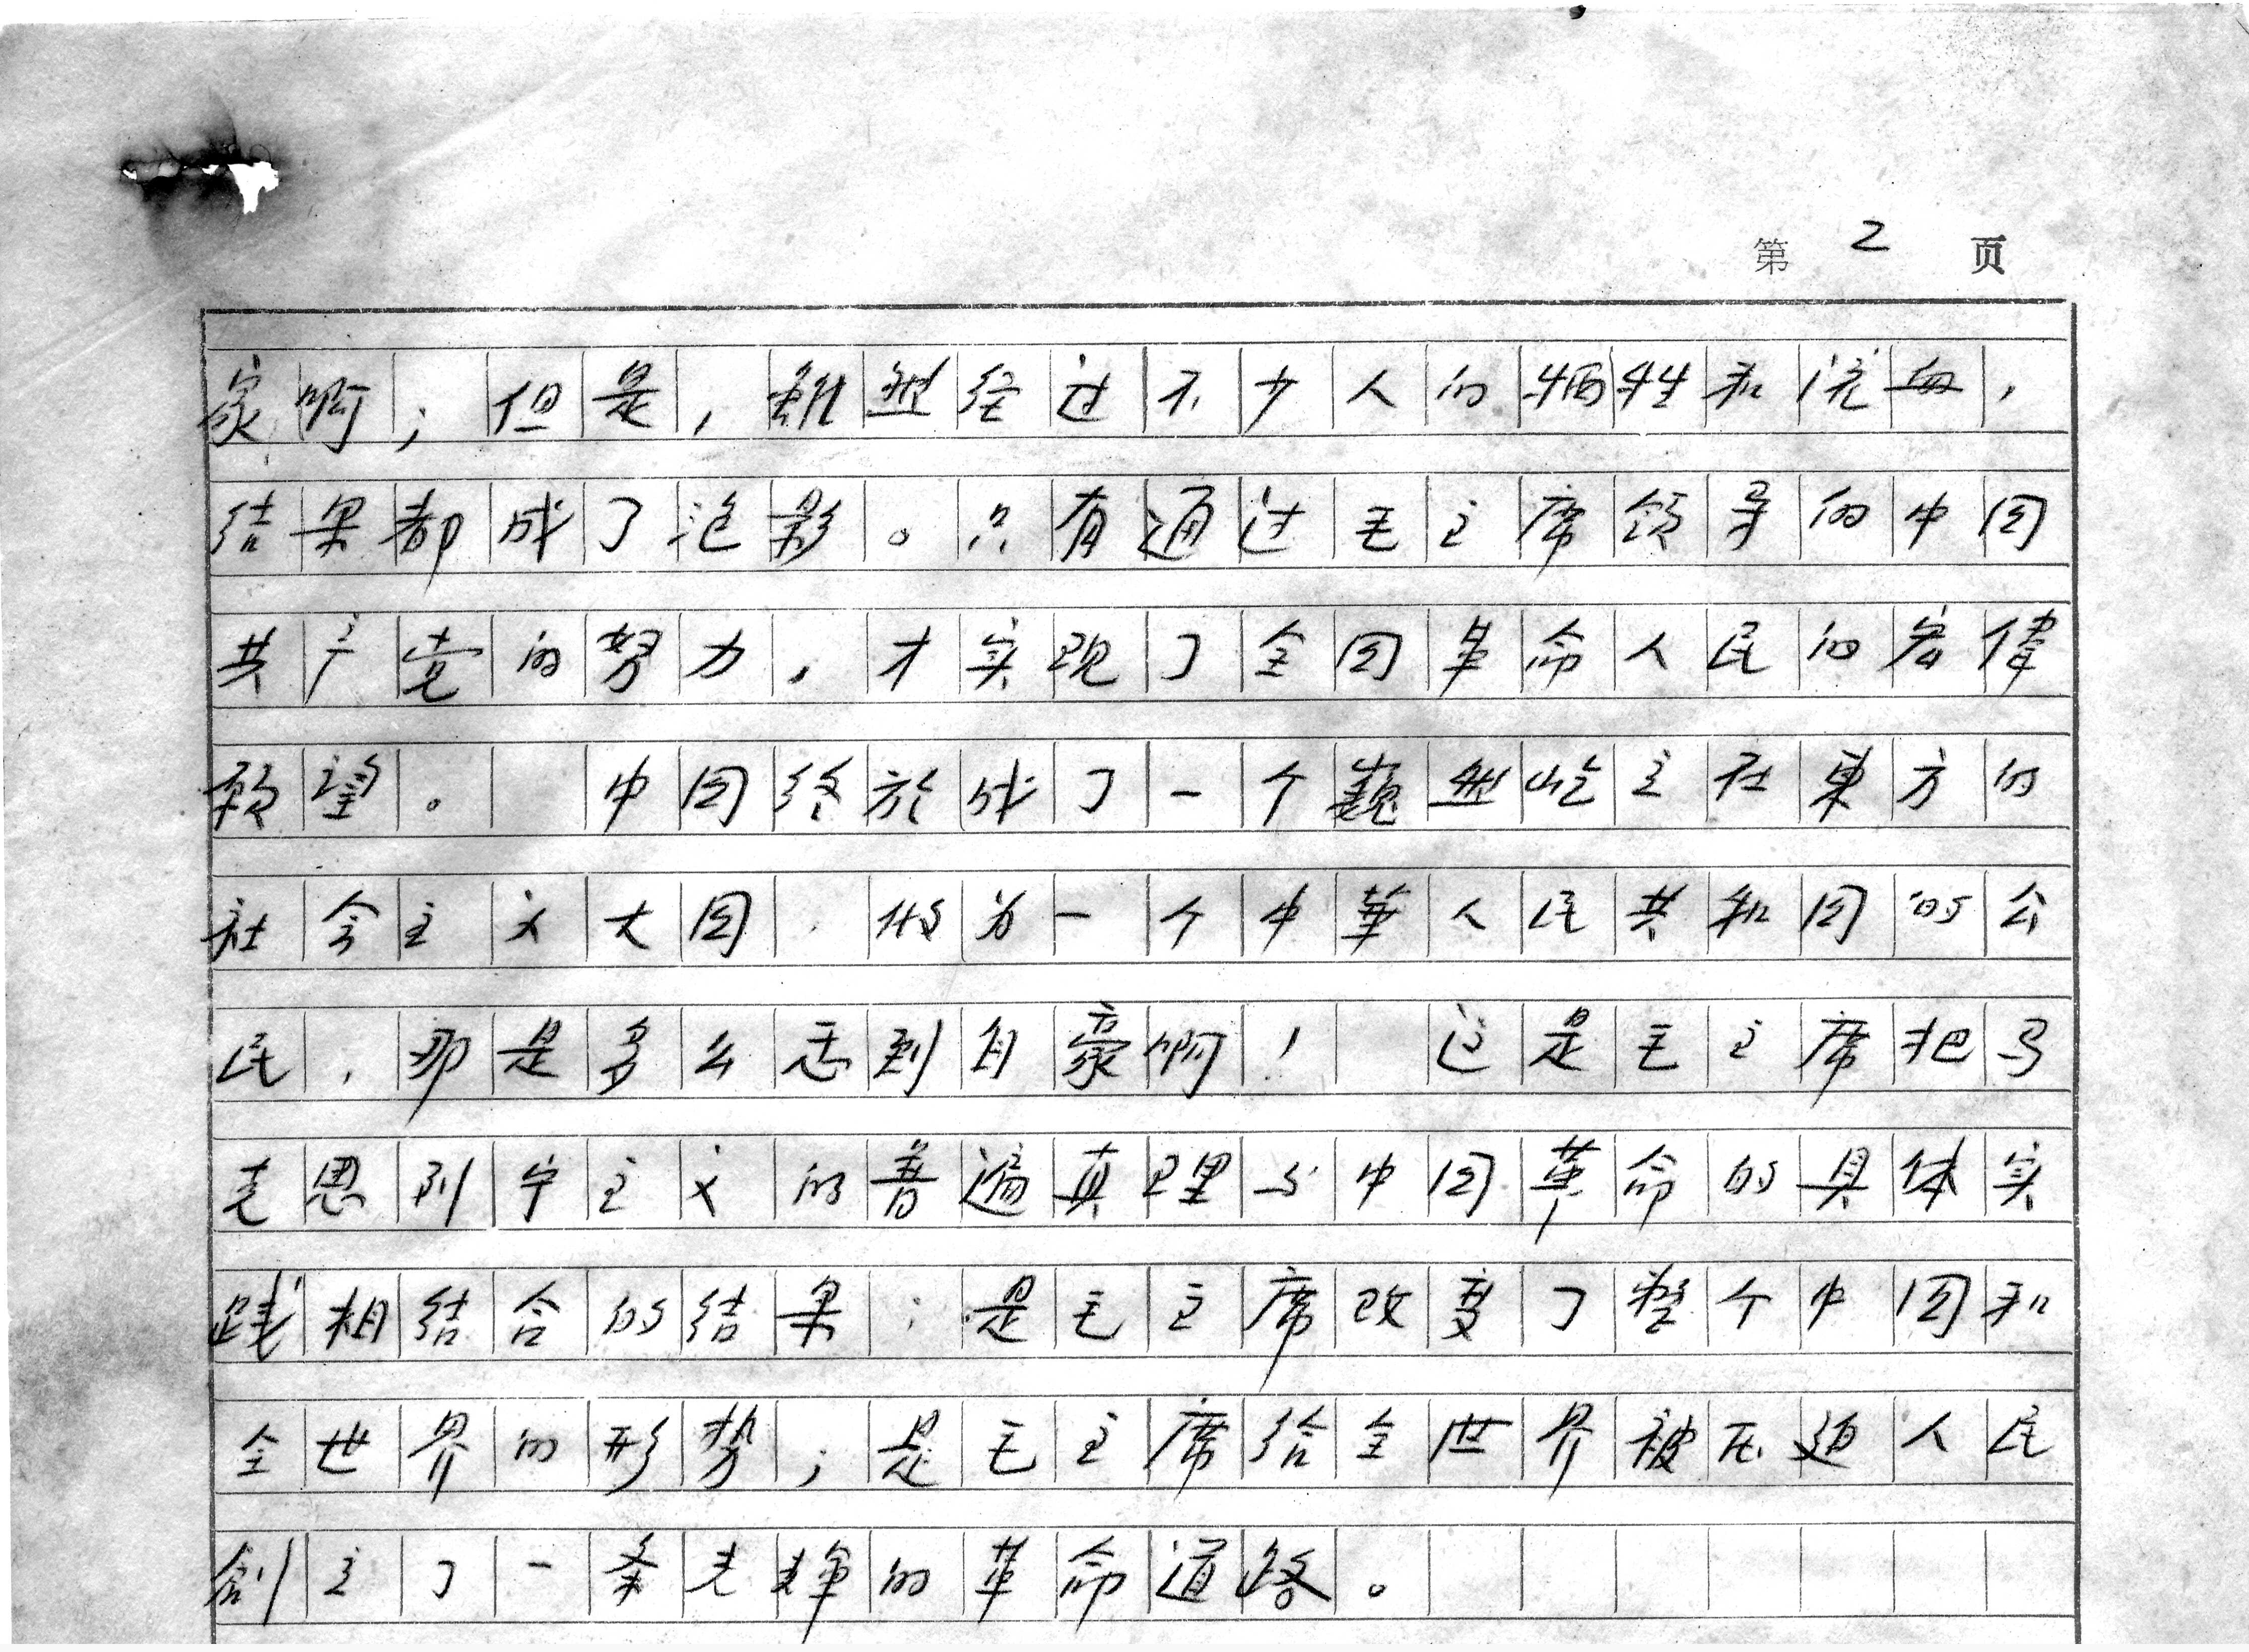 第 2 页
家啊；但是，虽然经过不少人的牺牲和流血，
结果都成了泡影。只有通过毛主席领导的中国
共产党的努力，才实现了全国革命人民的宏偉
願望。 中国终於成了一个巍然屹立在東方的
社会主义大国，做为一个中華人民共和国的公
民，那是多么感到自豪啊！ 这是毛主席把马
克思列宁主义的普遍真理与中国革命的具体实
践相结合的结果；是毛主席改变了整个中国和
全世界的形势；是毛主席给全世界被压迫人民
創立了一条光輝的革命道路。